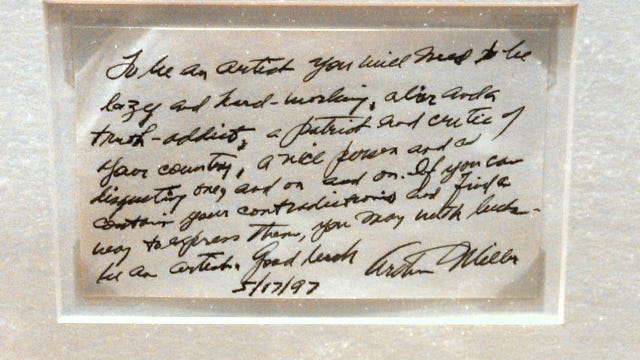 To be an artist you will need to be
lazy and hard-working, a liar and a
truth-addict, a patriot and critic of
your country, a nice person and a
disgusting one, and on and on. If you can
contain your contradictions and find a
way to express them, you may with luck -
be an artist. Good luck
Arthur Miller
5/17/97